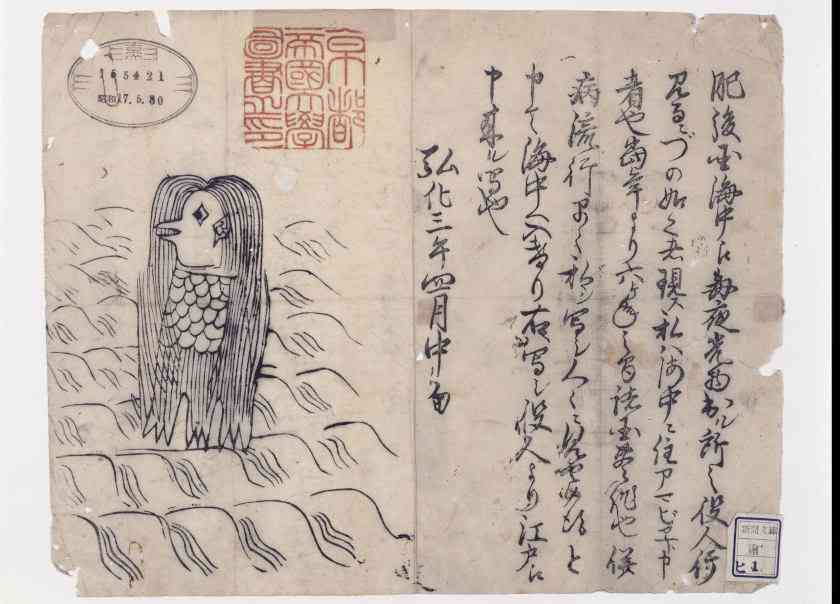 肥後国海中江毎夜光物出ル所之役人行
見るニづの如く之者現ス私ハ海中ニ住アマビヱト申
者也当年より六ヶ年之間諸国豊作也併
病流行早々私ヲ写シ人々ニ見セ候得と
申て海中へ入けり右写シ役人より江戸江
申来ル写也
弘化三年四月中旬
京都
帝國大學
圖書之印
165421
昭和17.5.30
新聞文庫
繪
ヒ 1